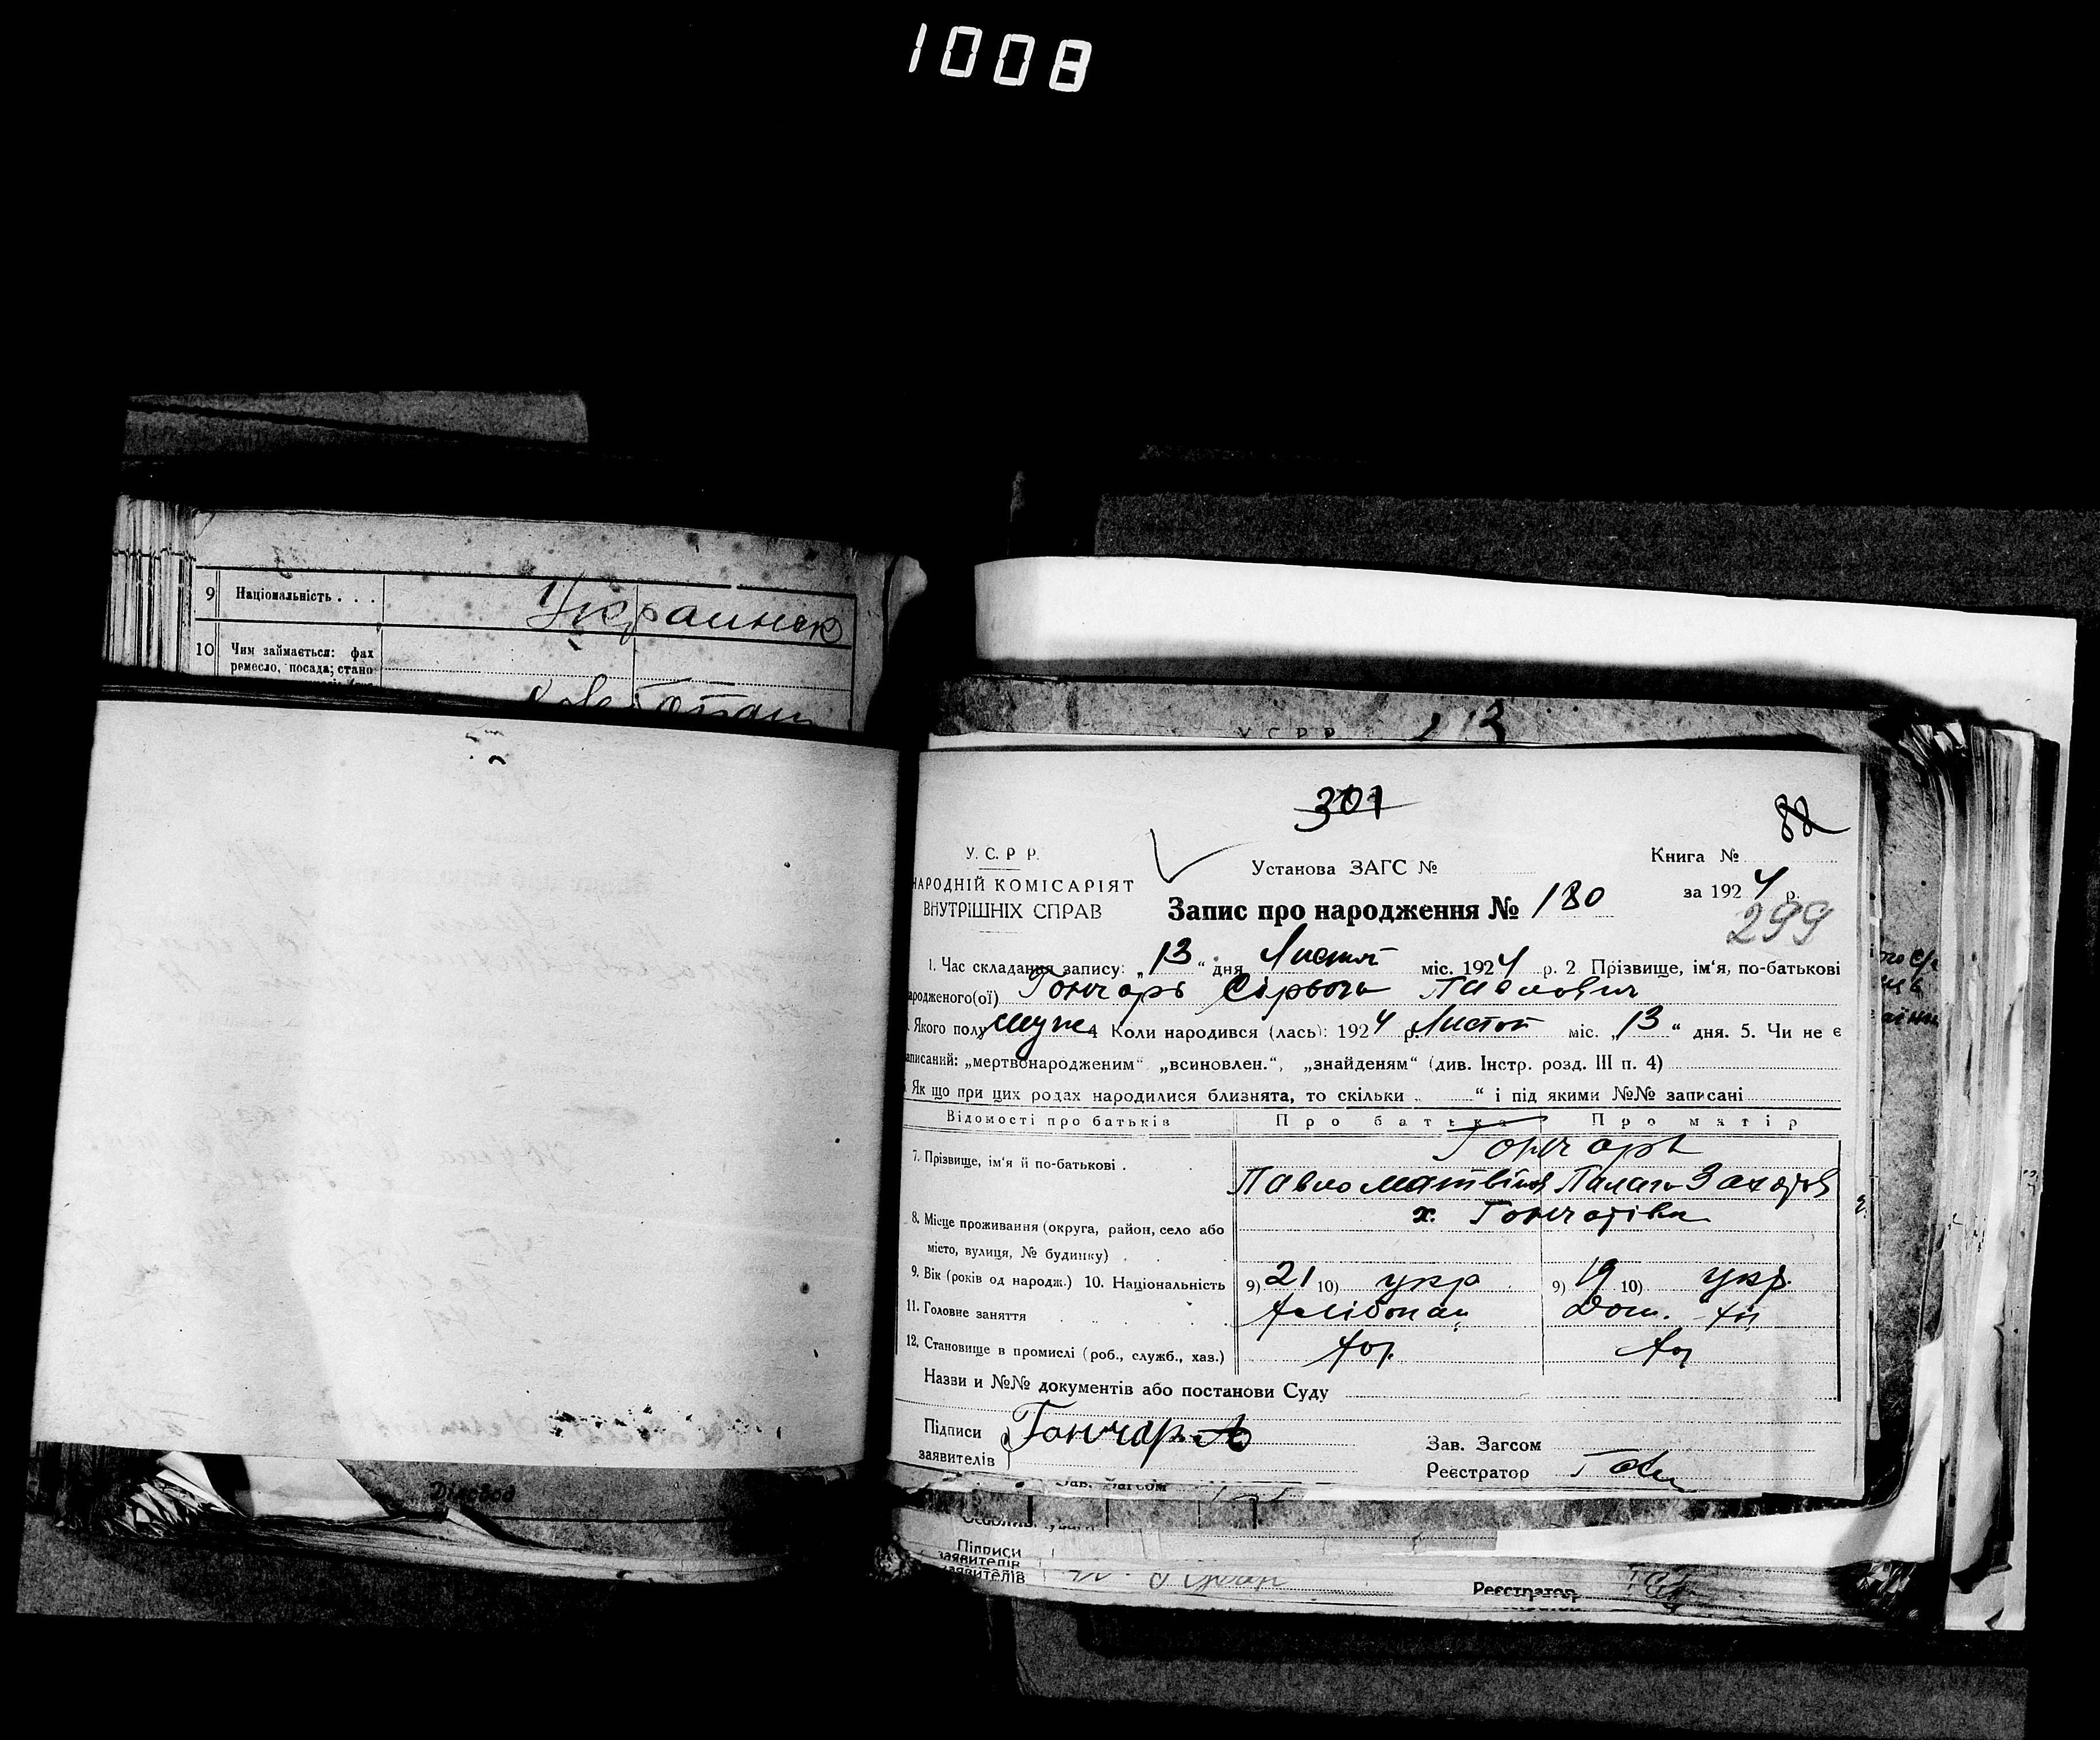 1008
9 Національність . . . Украинск
10 Чим займається: фах
ремесло, посада; стано
Діловод
У С Р Р 13
301
88
У. С. Р Р.
НАРОДНІЙ КОМІСАРІЯТ
ВНУТРІШНІХ СПРАВ
Установа ЗАГС №
Книга №
за 1924 р.
Запис про народження № 180
299
1. Час складання запису: „13“ дня Листоп міс. 1924 р. 2 Прізвище, ім‘я, по-батькові
ародженого(ої) Гончарь Сірьога Павлович
Якого полу муж. 4 Коли народився (лась): 1924 р. Листоп міс. „13“ дня. 5. Чи не є
аписаний: „мертвонародженим“ „всиновлен.“, „знайденям“ (див. Інстр. розд. III п. 4)
Як що при цих родах народилися близнята, то скільки „ “ і під якими №№ записані
Відомості про батьків Про батька Про матір
7. Прізвище, ім‘я й по-батькові . Гончарь
Павло Матвійов Палаги Захарів
8. Місце проживання (округа, район, село або х. Гончарівка
місто, вулиця, № будинку)
9. Вік (років од народж.) 10. Національність 9) 21 10) укр 9) 19 10) укр.
11. Головне заняття Хлібопаш Дом. хоз
12. Становище в промислі (роб., служб., хаз.) хоз. хоз
Назви и №№ документів або постанови Суду
Підписи Гончар
заявителів
Зав. Загсом
Реєстратор
Зав. Загсом
Підписи
заявителів
заявителів
Реєстратор